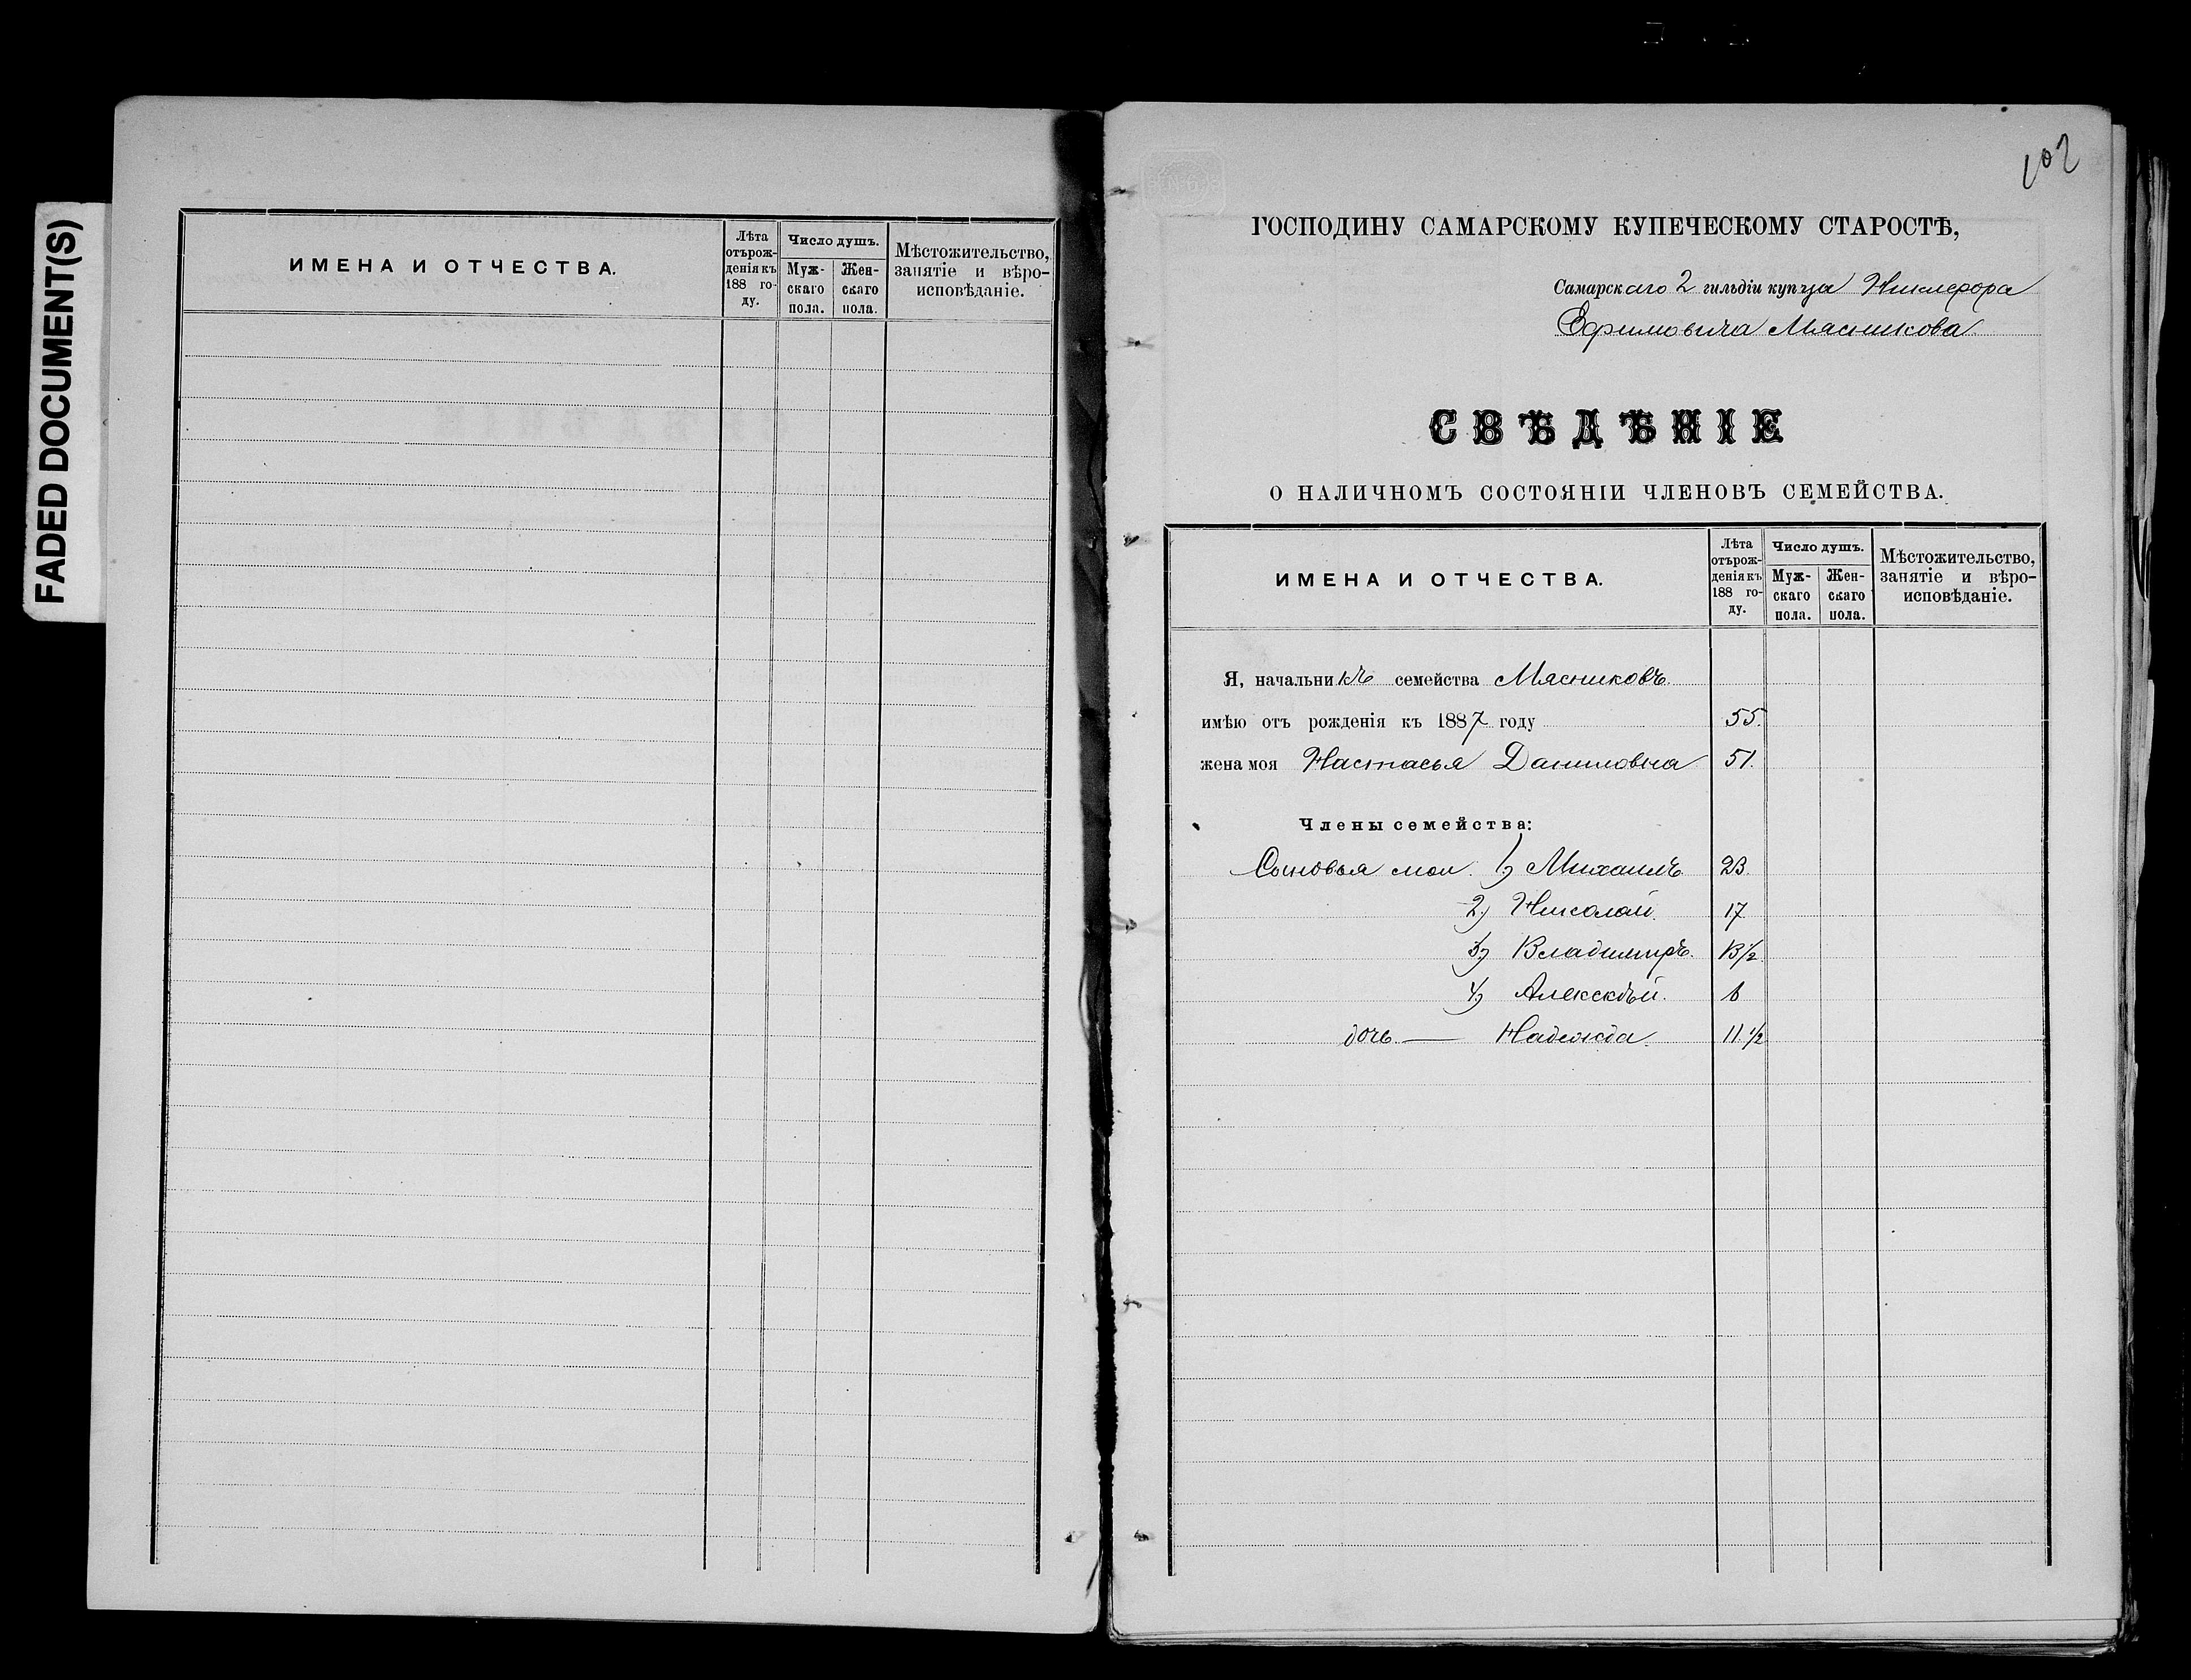 FADED DOCUMENT(S)
ИМЕНА И ОТЧЕСТВА.
Лѣта
отърож-
денiя къ
188 го-
ду.
Число душъ.
Муж-
скаго
пола.
Жен-
скаго
пола.
Мѣстожительство,
занятiе и вѣро-
исповѣданiе.
102
ГОСПОДИНУ САМАРСКОМУ КУПЕЧЕСКОМУ СТАРОСТѢ,
Самарскаго 2 гильдiи купца Никифора
Ефимовича Мясникова
СВѢДѢНIЕ
О НАЛИЧНОМЪ СОСТОЯНIИ ЧЛЕНОВЪ СЕМЕЙСТВА.
ИМЕНА И ОТЧЕСТВА.
Лѣта
отърож-
денiя къ
188 го-
ду.
Число душъ.
Муж-
скаго
пола.
Жен-
скаго
пола.
Мѣстожительство,
занятiе и вѣро-
исповѣданiе.
Я, начальникъ семейства Мясниковъ.
имѣю отъ рожденiя къ 1887 году 55.
жена моя Настасья Даниловна 51.
Члены семейства:
Сыновья мои. 1) Михаилъ 23.
2) Николай. 17
3) Владимиръ. 13 1/2
4) Алексѣй. 6
дочь — Надежда. 11 1/2